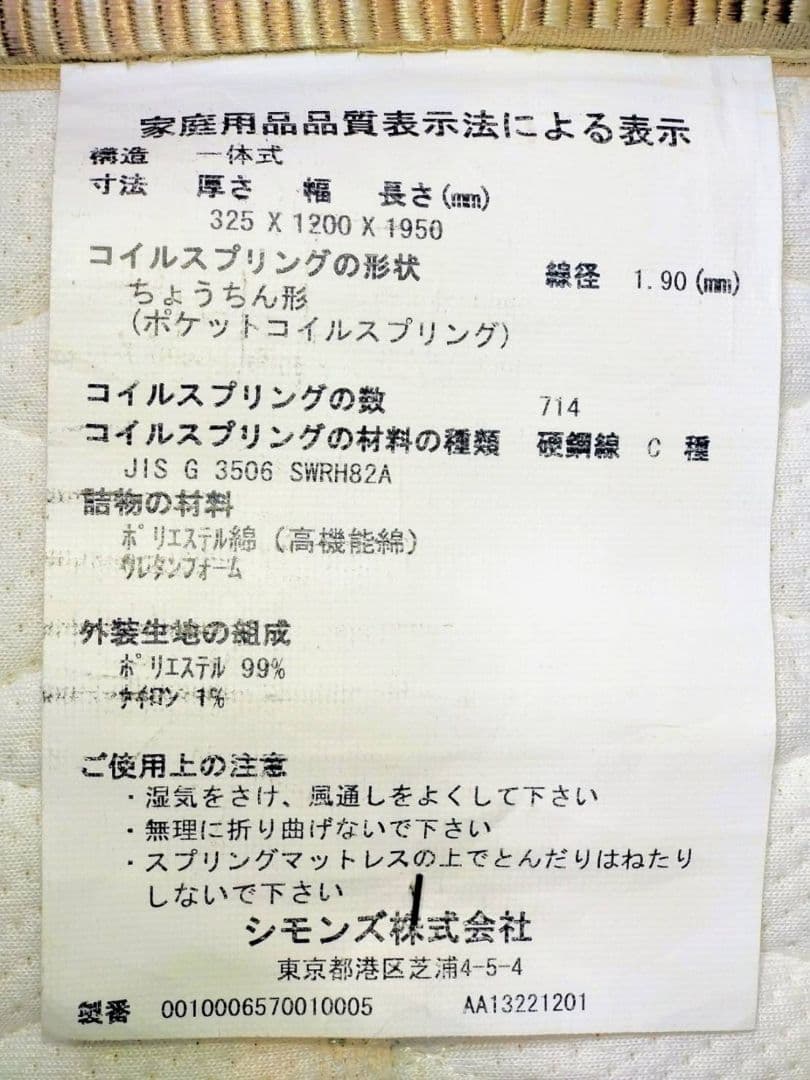 家庭用品品質表示法による表示
構造 一体式
寸法 厚さ 幅 長さ(㎜)
325 X 1200 X 1950
コイルスプリングの形状 線径 1.90(㎜)
ちょうちん形
(ポケットコイルスプリング)
コイルスプリングの数 714
コイルスプリングの材料の種類 硬鋼線 C 種
JIS G 3506 SWRH82A
詰物の材料
ﾎﾟﾘｴｽﾃﾙ綿(高機能綿)
ｳﾚﾀﾝﾌｫｰﾑ
外装生地の組成
ﾎﾟﾘｴｽﾃﾙ 99%
ﾅｲﾛﾝ 1%
ご使用上の注意
・湿気をさけ、風通しをよくして下さい
・無理に折り曲げないで下さい
・スプリングマットレスの上でとんだりはねたり
しないで下さい
シモンズ株式会社
東京都港区芝浦4-5-4
製番 0010006570010005 AA13221201